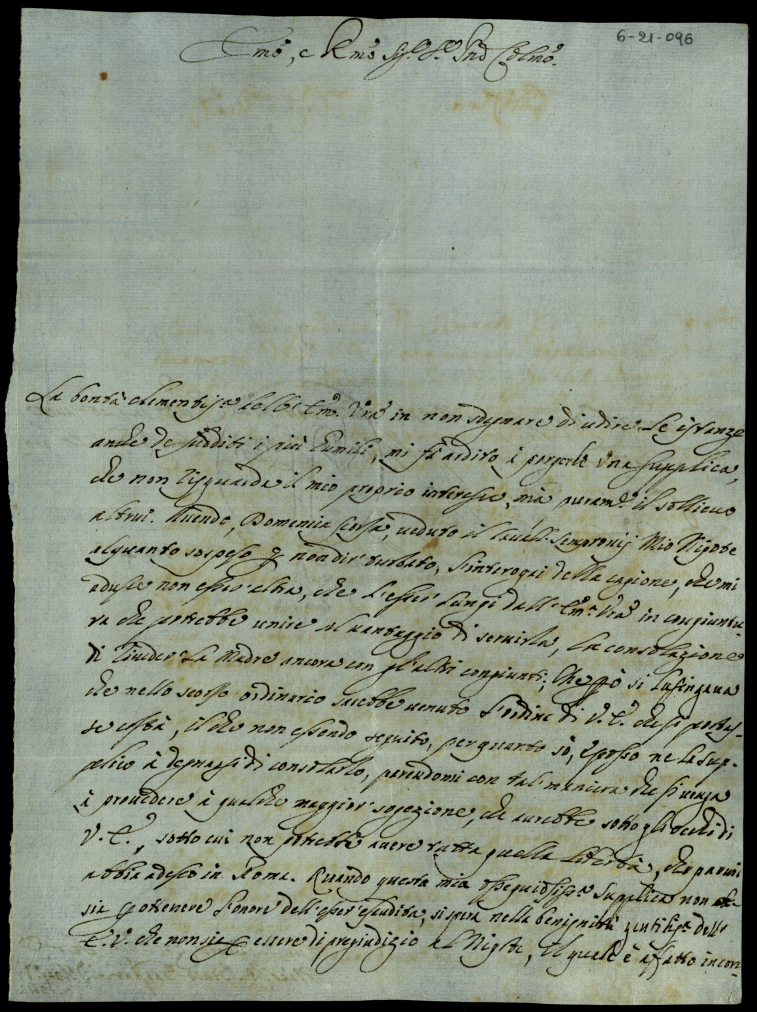 6-21-096
Emo, e Rmo Sig.r P.r Pnd Colmo.
La bontà clementiss.a dell' Em.a Vra in non sdegnare di udire le istanze
anche de sudditi i più humili, mi fà ardito à porgerle una supplica,
che non riguarda il mio proprio interesse, mà puram.te il sollievo
altrui. Avendo, Domenica scorsa, veduto il Cavall. Sempronij Mio Nipote
alquanto sospeso p non dir' turbato, l'interogai della cagione, che mi
adusse non esser' altra, che l'esser' lungi dall' Em.a Vra in congiuntu-
ra che potrebbe unire al vantaggio di servirla, la consolazione
di riveder' la Madre ancora con gl'altri congiunti; che però si lusingava
che nello scorso ordinario sarebbe venuto l'ordine di V. E. che si portas-
se costà, il che non essendo seguito, per quanto sò, Eposso ne la sup-
plico à degnarsi di consolarlo, parendomi con tal maniera che si venga
à provedere à qualche maggior' sogezione, che avrebbe sotto gli occhi di
V. E., sotto cui non potrebbe avere tutta quella libertà, che parmi
abbia adesso in Roma. Quando questa mia ossequiosiss.a supplica non
sia p ottenere l'onore dell'esser' esaudita, si spera nella benignità gentiliss.a dell'
E. V. che non sia p essere di pregiudizio al Nipote, il quale è affatto incon-